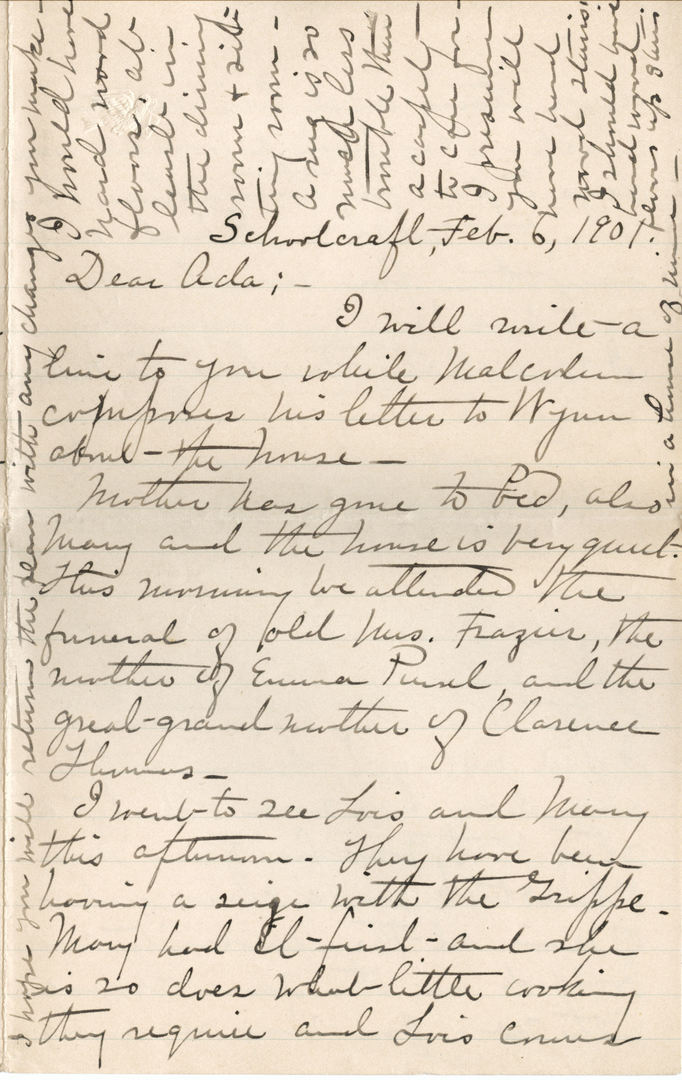 Schoolcraft, Feb. 6, 1901.
Dear Ada; —
I will write a
line to you while Malcolm
composes his letter to Wynn
about the house —
Mother has gone to bed, also
Mary and the house is very quiet.
This morning we attended the
funeral of old Mrs. Frazier, the
mother of Emma Pursel, and the
great-grand mother of Clarence
Thomas —
I went to see Lois and Mary
this afternoon. They have been
having a seige with the Grippe.
Mary had it first and she
is so does what little cooking
they require and Lois comes
I hope you will return the plan with any changes you make —
I would have
hard wood
floors at
least in
the dining
room & sit-
ting room —
A rug is so
much less
trouble than
a carpet
to care for —
I presume
you will
have hard
wood stairs.
I should have
hard wood
floors up stairs
in a house of mine —